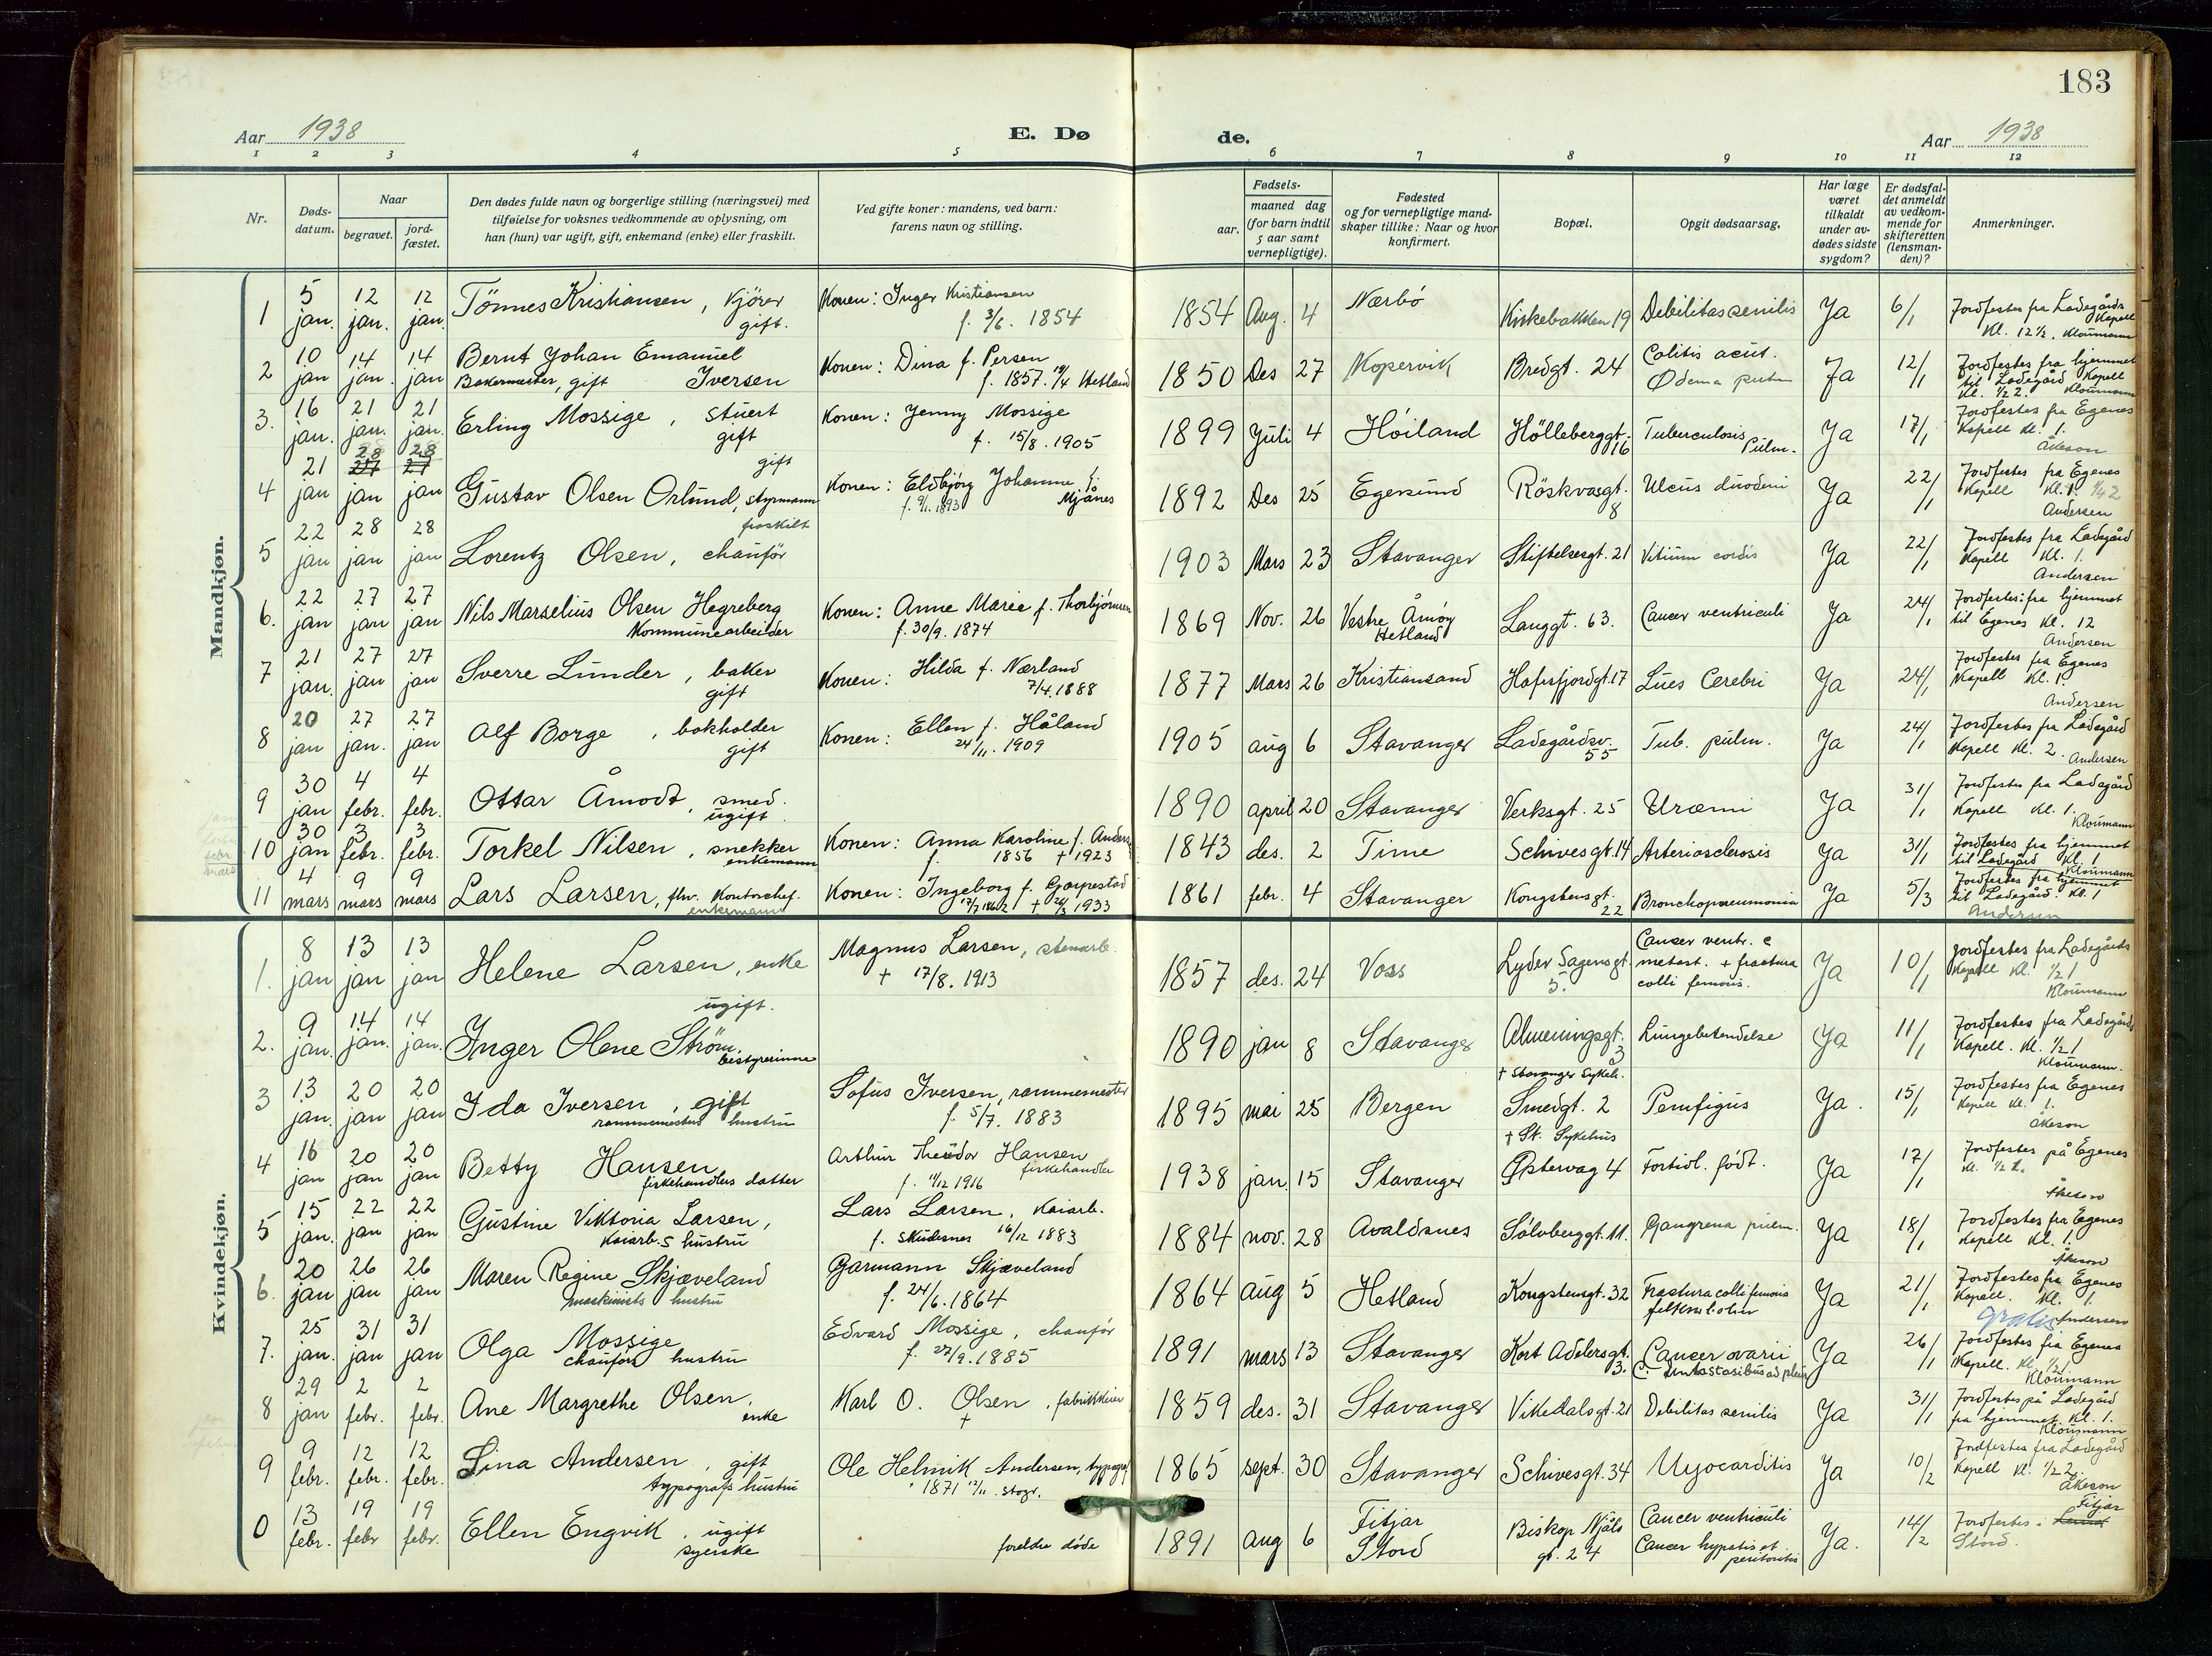 183
Aar 1938
E. Dø
de.
Aar 1938
1 2 3 4 5 6 7 8 9 10 11 12
Nr.
Døds-
datum.
Naar
begravet.
jord-
fæstet.
Den dødes fulde navn og borgerlige stilling (næringsvei) med
tilføielse for voksnes vedkommende av oplysning, om
han (hun) var ugift, gift, enkemand (enke) eller fraskilt.
Ved gifte koner: mandens, ved barn:
farens navn og stilling.
Fødsels-
aar.
maaned dag
(for barn indtil
5 aar samt
vernepligtige).
Fødested
og for vernepligtige mand-
skaper tillike: Naar og hvor
konfirmert.
Bopæl.
Opgit dødsaarsag.
Har læge
været
tilkaldt
under av-
dødes sidste
sygdom?
Er dødsfal-
det anmeldt
av vedkom-
mende for
skifteretten
(lensman-
den)?
Anmerkninger.
Mandkjøn.
1 5 jan. 12 jan. 12 jan. Tönnes Kristiansen, kjörer
gift.
Konen: Inger Kristiansen
f. 3/6. 1854
1854 Aug. 4 Nærbö Kirkebakken 19 Debilitas senilis Ja 6/1
Jordfestes fra Ladegårds
Kapell
Kl. 12½. Kloumann
2 10 jan 14 jan. 14 jan Bernt Johan Emanuel
Bakermester, gift Iversen
Konen: Dina f. Persen
f. 1857. 19/4 Hetland
1850 Des 27 Kopervik Bredgt. 24 Colitis acut.
Ødema pulm Ja 12/1
Jordfestes fra hjemmet
til Ladegård Kapell
Kl. ½2. Kloumann
3. 16 jan. 21 jan. 21 jan. Erling Mossige, stuert
gift
Konen: Jenny Mossige
f. 15/8. 1905
1899 Juli 4 Höiland Hölleberggt.
16 Tuberculosis
Pulm. Ja 17/1
Jordfestes fra Egenes
Kapell Kl. 1.
Åkeson
4 21 jan 28 27 jan 28 27 jan gift
Gustav Olsen Orlund, styrmann
Konen: Eldbjörg Johanne f.
f. 9/1. 1893 Mjånes
1892 Des 25 Egersund Röskvagt.
8 Ulcus duodeni Ja 22/1
Jordfestes fra Egenes
Kapell Kl. 1. ½2
Andersen
5 22 jan 28 jan 28 jan fraskilt
Lorentz Olsen, chauför
1903 Mars 23 Stavanger Stiftelsesgt. 21 Vitium cordis Ja 22/1
Jordfestes fra Ladegård
Kapell Kl. 1.
Andersen
6. 22 jan 27 jan 27 jan Nils Marselius Olsen Hegreberg
Kommunearbeider
Konen: Anne Marie f. Thorbjörnsen
f. 30/9. 1874
1869 Nov. 26 Vestre Åmöy
Hetland Langgt. 63. Cancer ventriculi Ja 24/1
Jordfestes fra hjemmet
til Egenes Kl. 12
Andersen
7 21 jan. 27 jan 27 jan Sverre Lunder, baker
gift
Konen: Hilda f. Nærland
7/4. 1888
1877 Mars 26 Kristiansand Hafrsfjordgt. 17 Lues Cerebri Ja 24/1
Jordfestes fra Egenes
Kapell Kl. 1
Andersen
8 20 jan 27 jan. 27 jan Alf Borge, bokholder
gift
Konen: Ellen f. Håland
24/11. 1909
1905 aug 6 Stavanger Ladegårdsv.
55 Tub. pulm. Ja 24/1
Jordfestes fra Ladegård
Kapell Kl. 2. Andersen
9 30 jan 4 febr. 4 febr. Ottar Åmodt, smed.
ugift
1890 april 20 Stavanger Verksgt. 25 Uræmi Ja 31/1
Jordfestes fra Ladegård
Kapell Kl. 1.
Kloumann
10 30 jan 3 febr. 3 febr. Torkel Nilsen, snekker
enkemann
Konen: Anna Karoline f. Anders.
f. 1856 † 1923
1843 des. 2 Time Schivesgt. 14 Arteriosclerosis Ja 31/1
Jordfestes fra hjemmet
til Ladegård Kl. 1
Kloumann
11 4 mars 9 mars 9 mars Lars Larsen, fhv. Kontorchef.
enkemann
Konen: Ingeborg f. Gjorpestad
17/7 1862 † 24/3 1933
1861 febr. 4 Stavanger Kongstensgt.
22 Bronchopneumonia Ja 5/3
Jordfestes fra hjemmet
til Ladegård. Kl. 1
Andersen
Kvindekjøn.
1. 8 jan 13 jan 13 jan Helene Larsen, enke
Magnus Larsen, stenarb.
† 17/8. 1913
1857 des. 24 Voss Lyder Sagensgt.
5. Cancer ventr. c
metast. + fractura
colli femoris. Ja 10/1
Jordfestes fra Ladegårds
Kapell Kl. ½1
Kloumann
2. 9 jan. 14 jan. 14 jan. ugift.
Inger Olene Ström.
bestyrerinne
1890 jan 8 Stavanger Almenningsgt.
3
† Stavanger Sykeh. Lungebetendelse Ja 11/1
Jordfestes fra Ladegårds
Kapell. Kl. ½1
Kloumann.
3 13 jan. 20 jan 20 jan Ida Iversen, gift
rammemesters hustru
Sofus Iversen, rammemester
f. 5/7. 1883
1895 mai 25 Bergen Smedgt. 2
† St. Sykehus Pemfigus Ja. 15/1
Jordfestes fra Egenes
Kapell Kl. 1.
Åkeson
4 16 jan 20 jan 20 jan Betty Hansen
fiskehandlers datter
Arthur Theodor Hansen
fiskehandler
f. 11/12 1916
1938 jan. 15 Stavanger Østervag 4 Fortidl. født. Ja 17/1
Jordfestes på Egenes
Kl. ½2.
Åkeson
5 15 jan. 22 jan 22 jan Gustine Viktoria Larsen,
Kaiarb.s hustru
Lars Larsen, Kaiarb.
f. Skudesnes 16/12 1883
1884 nov. 28 Avaldsnes Sölvberggt. 11. Gangrena pulm. Ja 18/1
Jordfestes fra Egenes
Kapell Kl. 1.
Åkeson
6. 20 jan 26 jan 26 jan Maren Regine Skjæveland
maskinists hustru
Garmann Skjæveland
f. 24/6. 1864
1864 aug 5 Hetland Kongstensgt. 32 Fractura colli femoris
Ja 21/1
Jordfestes fra Egenes
Kapell. Kl. 1.
Gratis Andersen
7. 25 jan. 31 jan 31 jan Olga Mossige
chauförs hustru
Edvard Mossige, chauför
f. 27/9. 1885
1891 mars 13 Stavanger Kort Adelersgt.
3. Cancer ovarii
c. metastasibus ad pleur Ja 26/1
Jordfestes fra Egenes
Kapell. Kl. ½1.
Kloumann
8 29 jan 2 febr. 2 febr. Ane Margrethe Olsen,
enke
Karl O. Olsen, fabrikkeier
†
1859 des. 31 Stavanger Vikedalsgt. 21 Debilitas senilis Ja 31/1
Jordfestes på Ladegård
fra hjemmet. Kl. 1.
Kloumann
9 9 febr. 12 febr. 12 febr. Lina Andersen, gift
typografs hustru
Ole Helmik Andersen, typograf
1871 12/11. Stvgr.
1865 sept. 30 Stavanger Schivesgt. 34 Myocarditis Ja 10/2
Jordfestes fra Ladegård
Kapell Kl. ½2
Åkeson
0 13 febr. 19 febr 19 febr. Ellen Engvik, ugift
syerske
foreldre döde
1891 Aug 6 Fitjar
Stord Biskop Njåls
gt. 24 Cancer ventriculi
Cancer hepatis et
peritoritis Ja. 14/2
Fitjar
Jordfestes i
Stord.